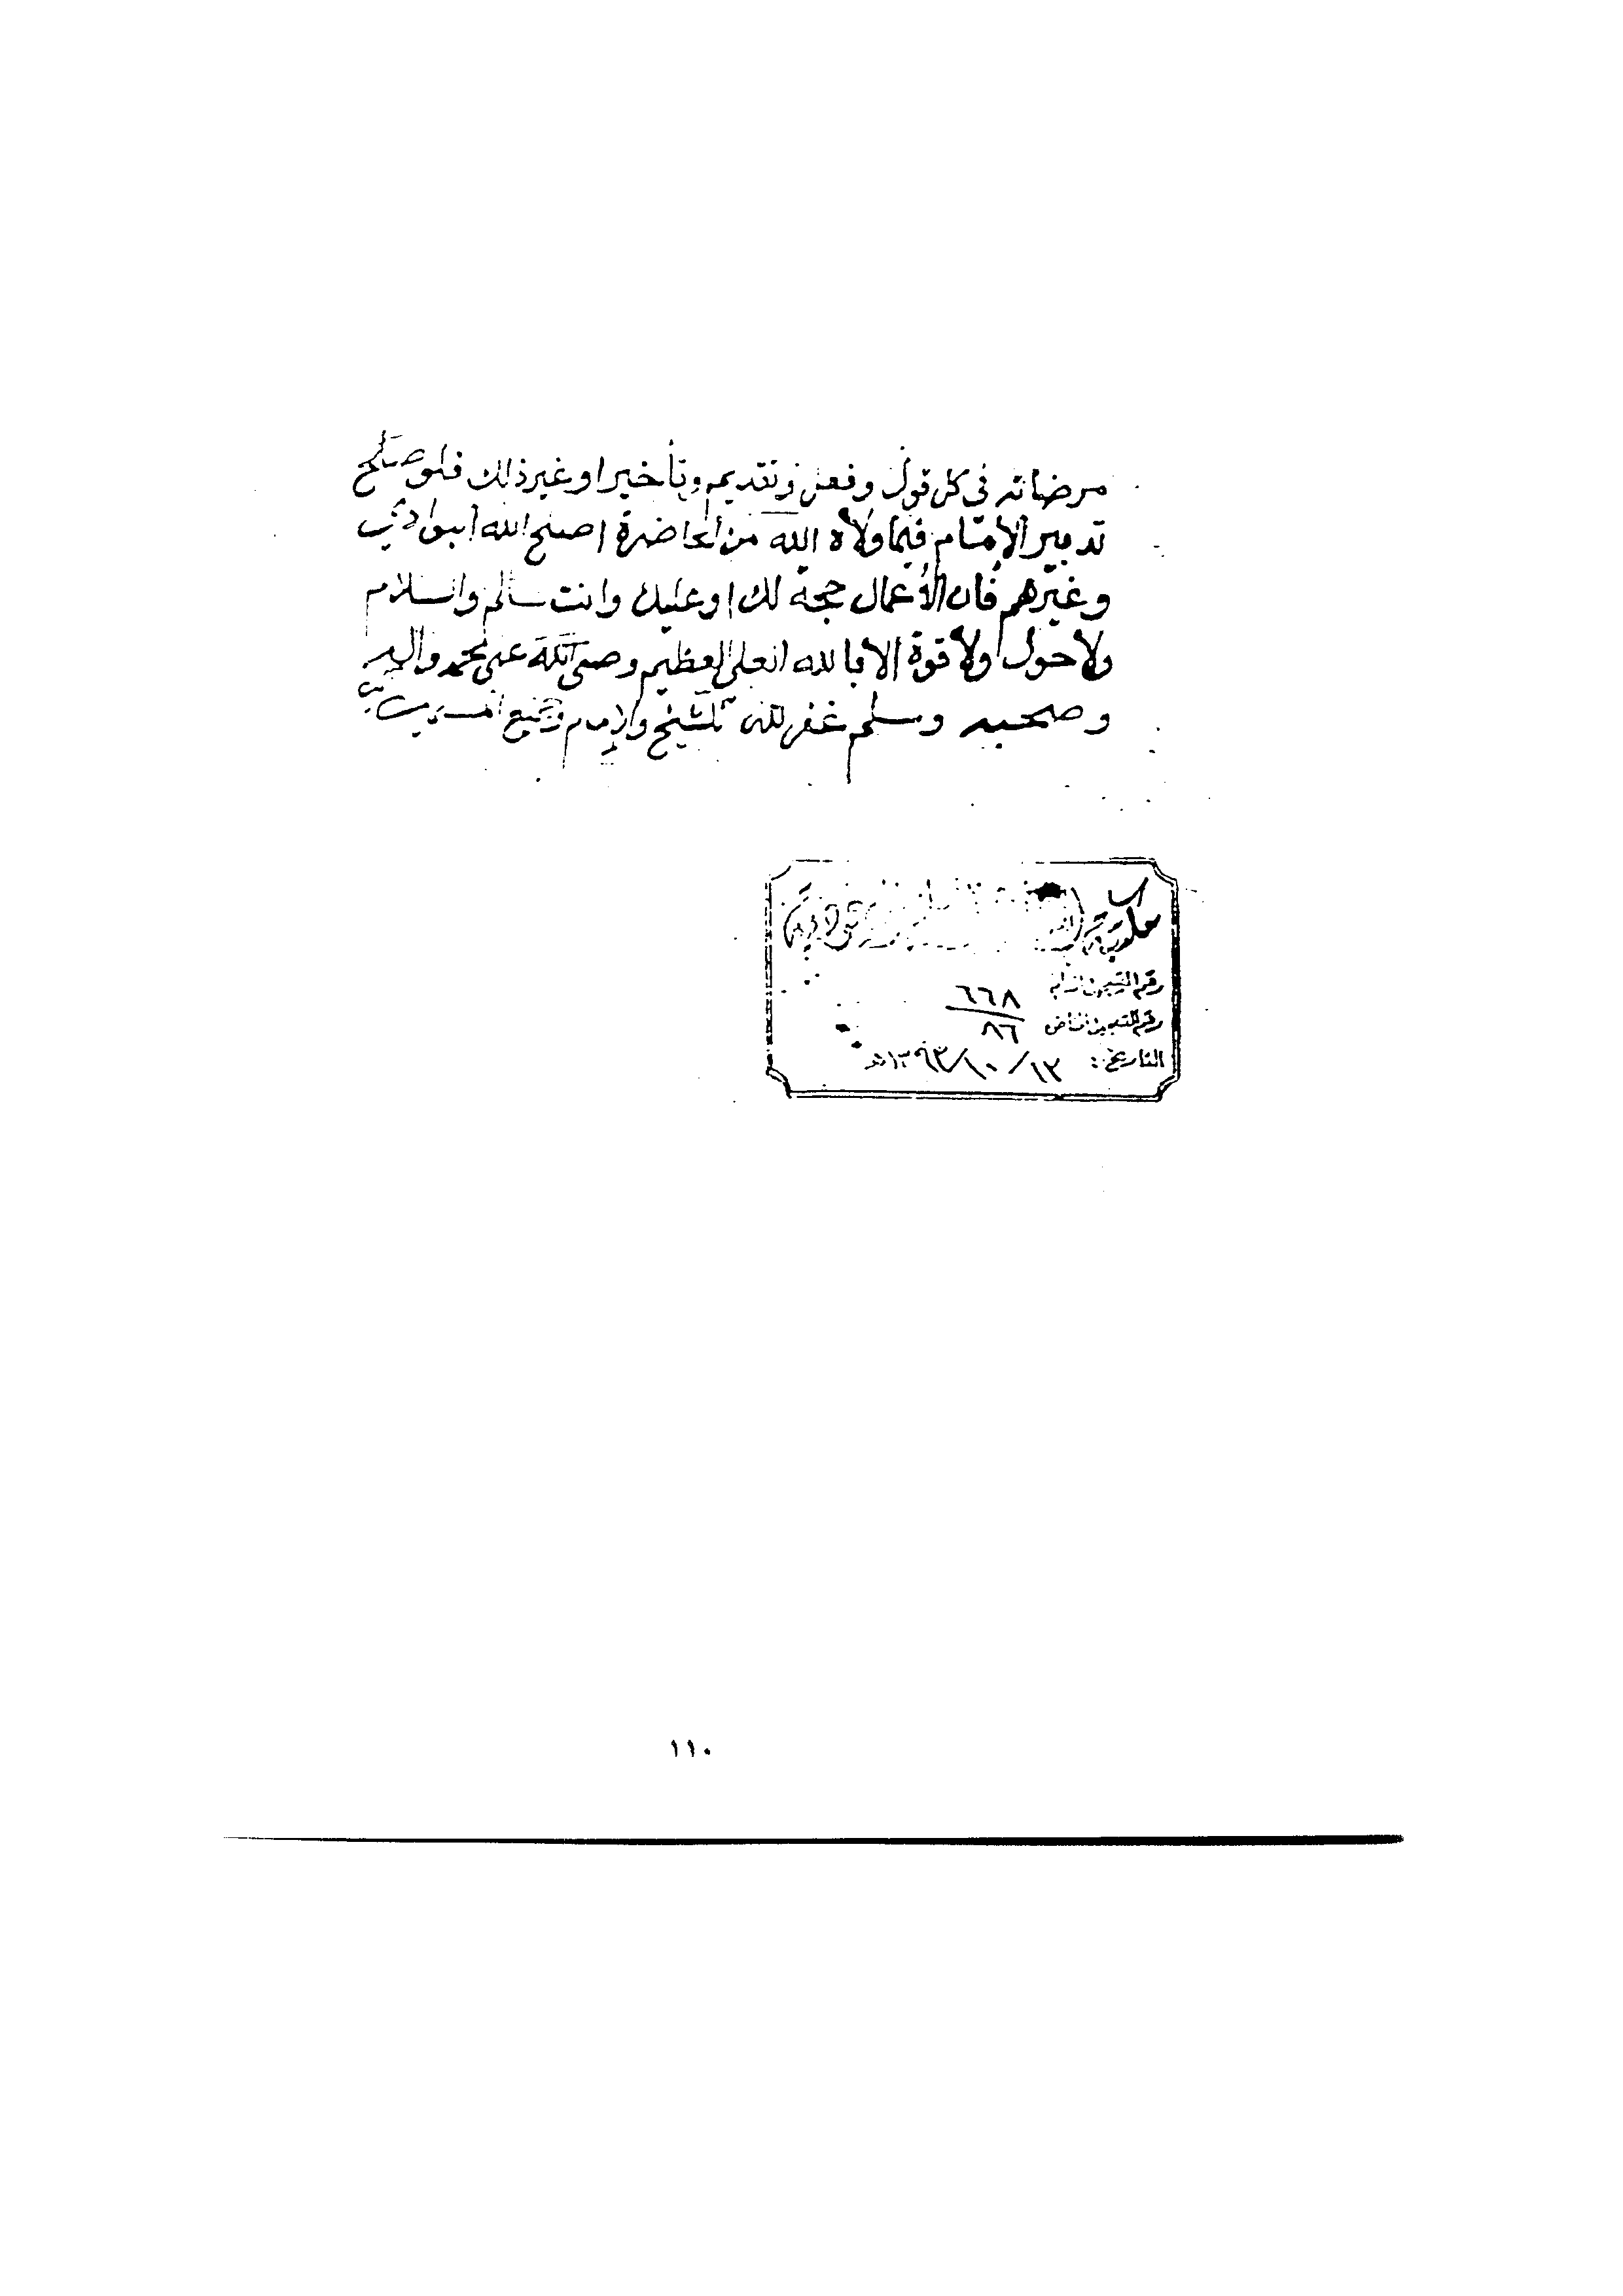 مرضاته في كل قول وفعل وتقديم وتأخيرا وغير ذلك فلو صلح
تدبير الإمام فيما ولاه الله من الحاضرة اصلح الله البوادي
وغيرهم فان الأعمال حجة لك او عليك وانت سالم والسلام
ولا حول ولا قوة الا بالله العلي العظيم وصلى الله على محمد واله
وصحبه وسلم غفر الله للشيخ والإمام وجميع
مكتبة
رقم التسجيل العام ٦٦٨
رقم التسجيل الخاص ٨٦
التاريخ: ١٣ / ١٠ / ١٣٩٣هـ
١١٠